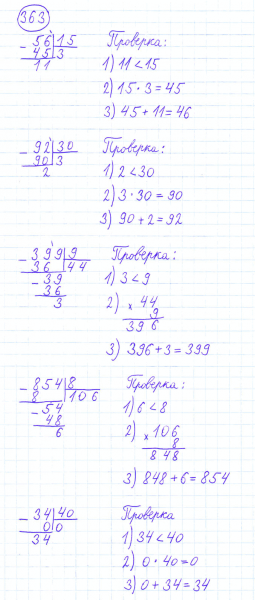 363
- 56 | 15 Проверка:
45 | 3
11
1) 11 < 15
2) 15 · 3 = 45
3) 45 + 11 = 46
- 92 | 30 Проверка:
90 | 3
2
1) 2 < 30
2) 3 · 30 = 90
3) 90 + 2 = 92
- 399 | 9 Проверка:
36 | 44
- 39
36
3
1) 3 < 9
2) × 44
9
396
3) 396 + 3 = 399
- 854 | 8 Проверка:
8 | 106
- 54
48
6
1) 6 < 8
2) × 106
8
848
3) 848 + 6 = 854
- 34 | 40 Проверка
0 | 0
34
1) 34 < 40
2) 0 · 40 = 0
3) 0 + 34 = 34